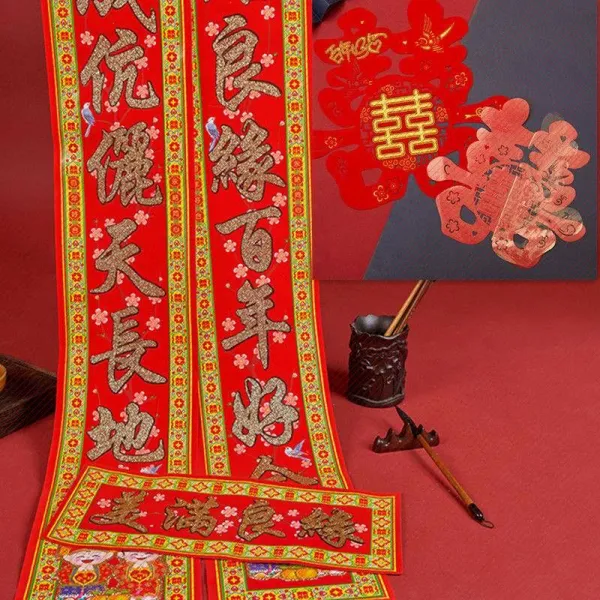 良緣百年好合
成伉儷天長地
美滿良緣
囍